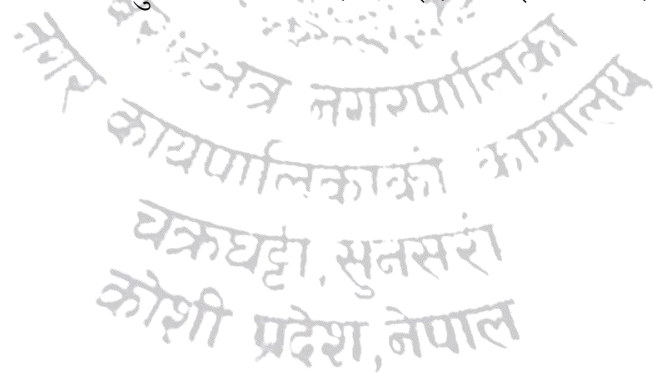 बराहक्षेत्र नगरपालिका
नगर कार्यपालिकाको कार्यालय
चक्रघट्टी, सुनसरी
कोशी प्रदेश, नेपाल